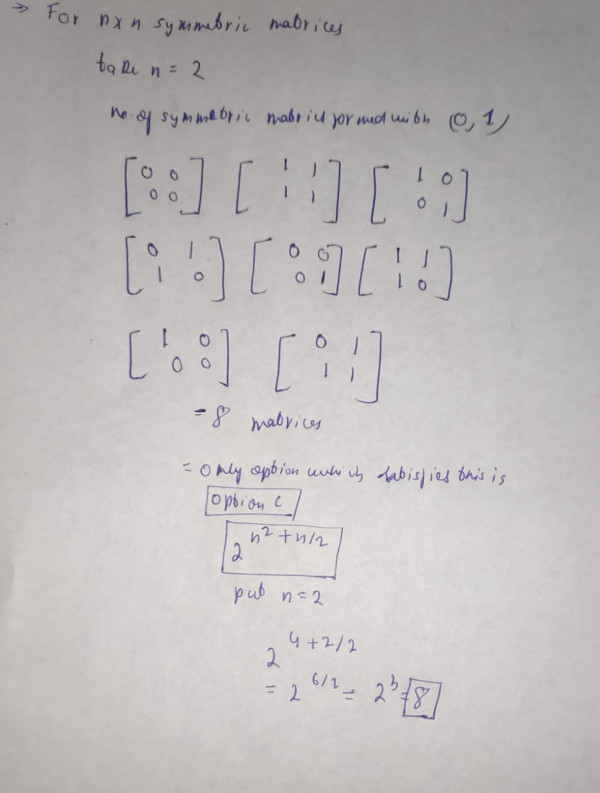 → For nxn symmetric matrices
take n = 2
no. of symmetric matrics formed with (0, 1)
[0 0 [1 1 [1 0
0 0] 1 1] 0 1]
[0 1 [0 0 [1 1
1 0] 0 1] 1 0]
[1 0 [0 1
0 0] 1 1]
= 8 matrices
= only option which satisfies this is
option C
2^n²+n/2
put n=2
2^4+2/2
= 2^6/2 = 2^3 = 8